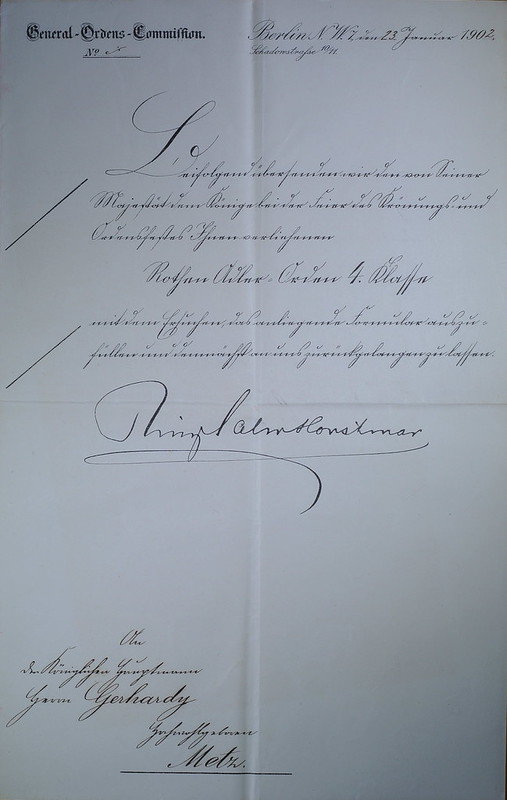 General-Ordens-Commission.
Berlin N.W.7, den 23. Januar 1902.
No
Schadowstraße 10/11.
Beifolgend übersenden wir den von Seiner
Majestät dem Könige bei der Feier des Krönungs- und
Ordensfestes Ihnen verliehenen
Rothen Adler-Orden 4. Klasse
mit dem Ersuchen, das anliegende Formular auszu-
füllen und demnächst an uns zurückgelangen zu lassen.
Salm Horstmar
An
den Königlichen Hauptmann
Herrn Gerhardy
Hochwohlgeboren
Metz.